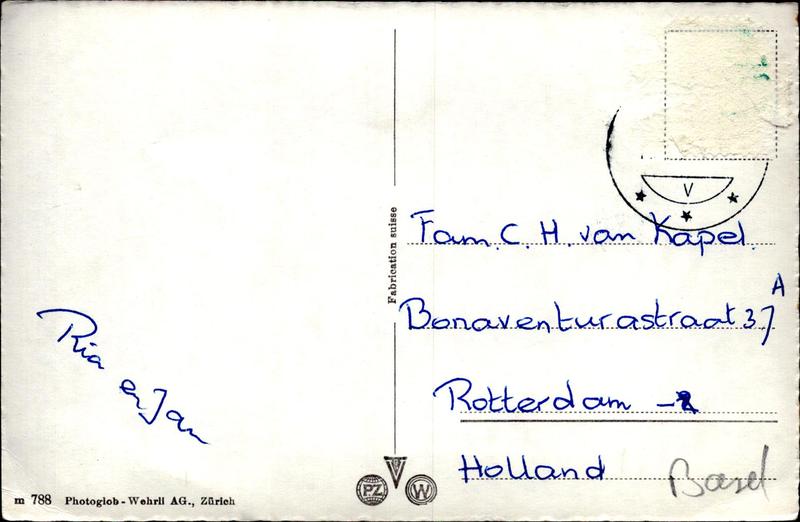 Ria
en Jan
m 788 Photoglob-Wehrli AG., Zürich
Fabrication suisse
PZ W
V
Fam. C. H. van Kapel.
Bonaventurastraat 37 A
Rotterdam -2
Holland
Basel